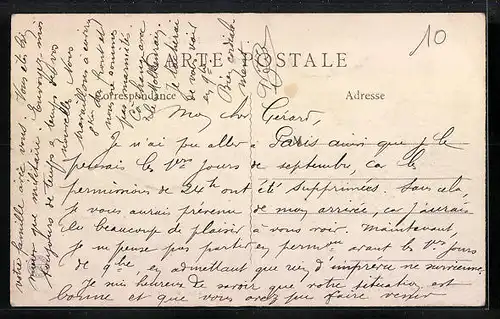 10
CARTE POSTALE
Correspondance
Adresse
Mon cher Gérard,
Je n'ai pu aller à Paris ainsi que je le
pensais les 1ers jours de septembre, car les
permissions de 24h ont été supprimées. Sans cela
je vous aurais prévenu de mon arrivée, car j'aurais
eu beaucoup de plaisir à vous voir. Maintenant,
je ne pense pas partir en permon avant les 1ers jours
de 9bre, en admettant que rien d'imprévu ne survienne.
Je suis heureux de savoir que votre situation est
bonne et que vous avez pu faire venir
votre famille avec vous. Vous êtes
mieux que militaire. Envoyez-moi
toujours de temps en temps de vos
nouvelles. Nous
travaillons à
du front et
nous sommes
pas
Je tâcherai
de vous voir
en 9bre
Bien cordiale-
ment